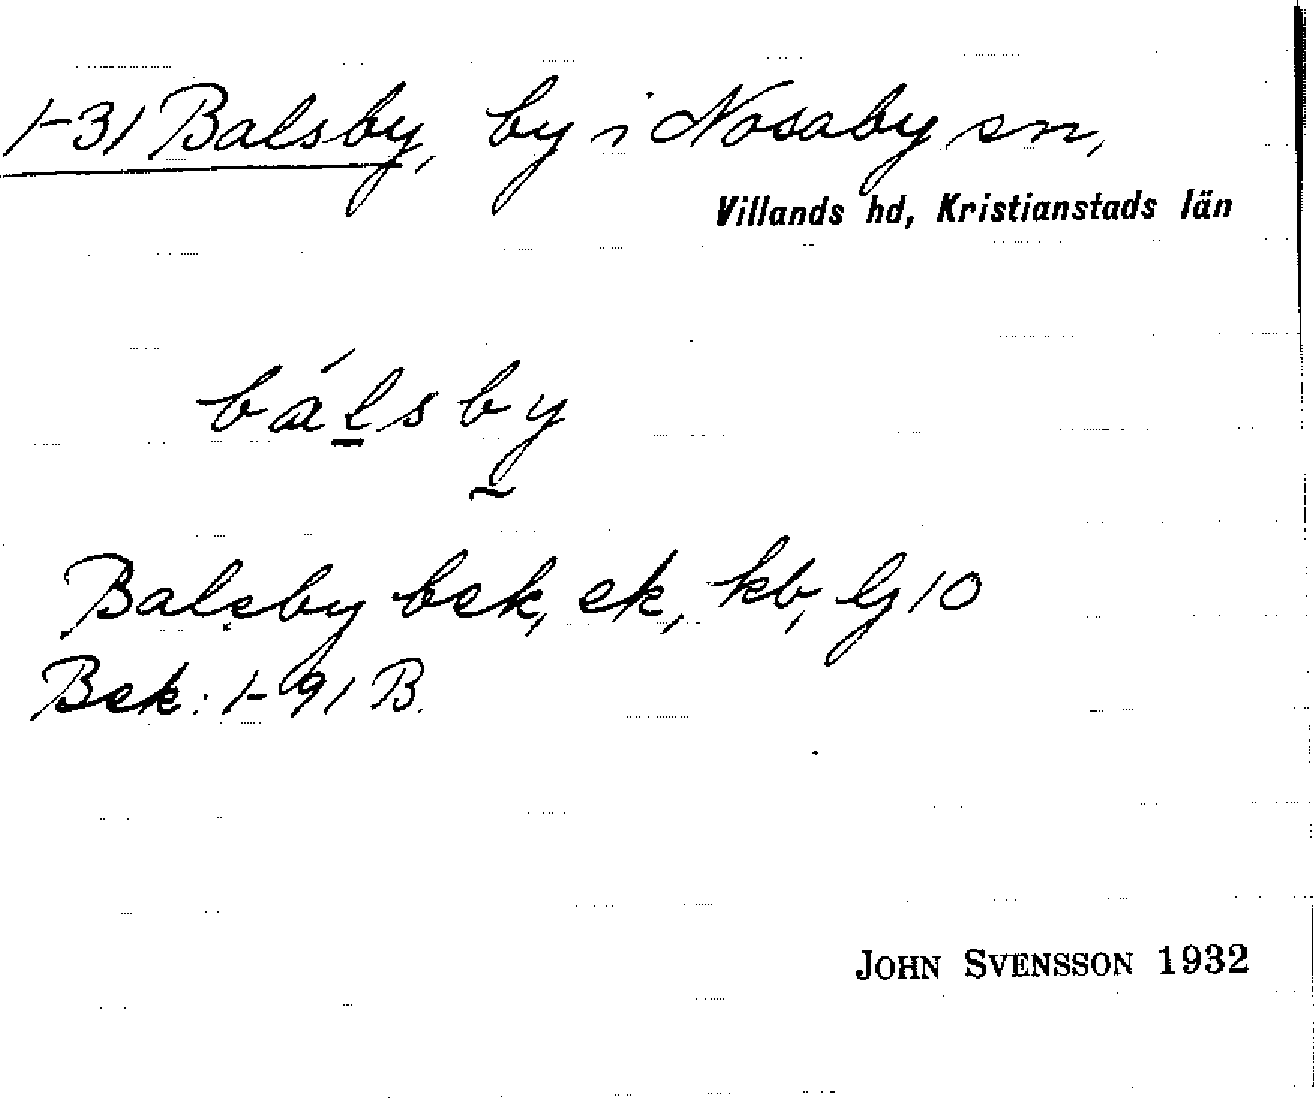 1-31 Balsby, by i Nosaby sn,
Villands hd, Kristianstads län
bálsby
Balsby bsk, ek, kb, lj 10
Bsk: 1-91 B.
JOHN SVENSSON 1932